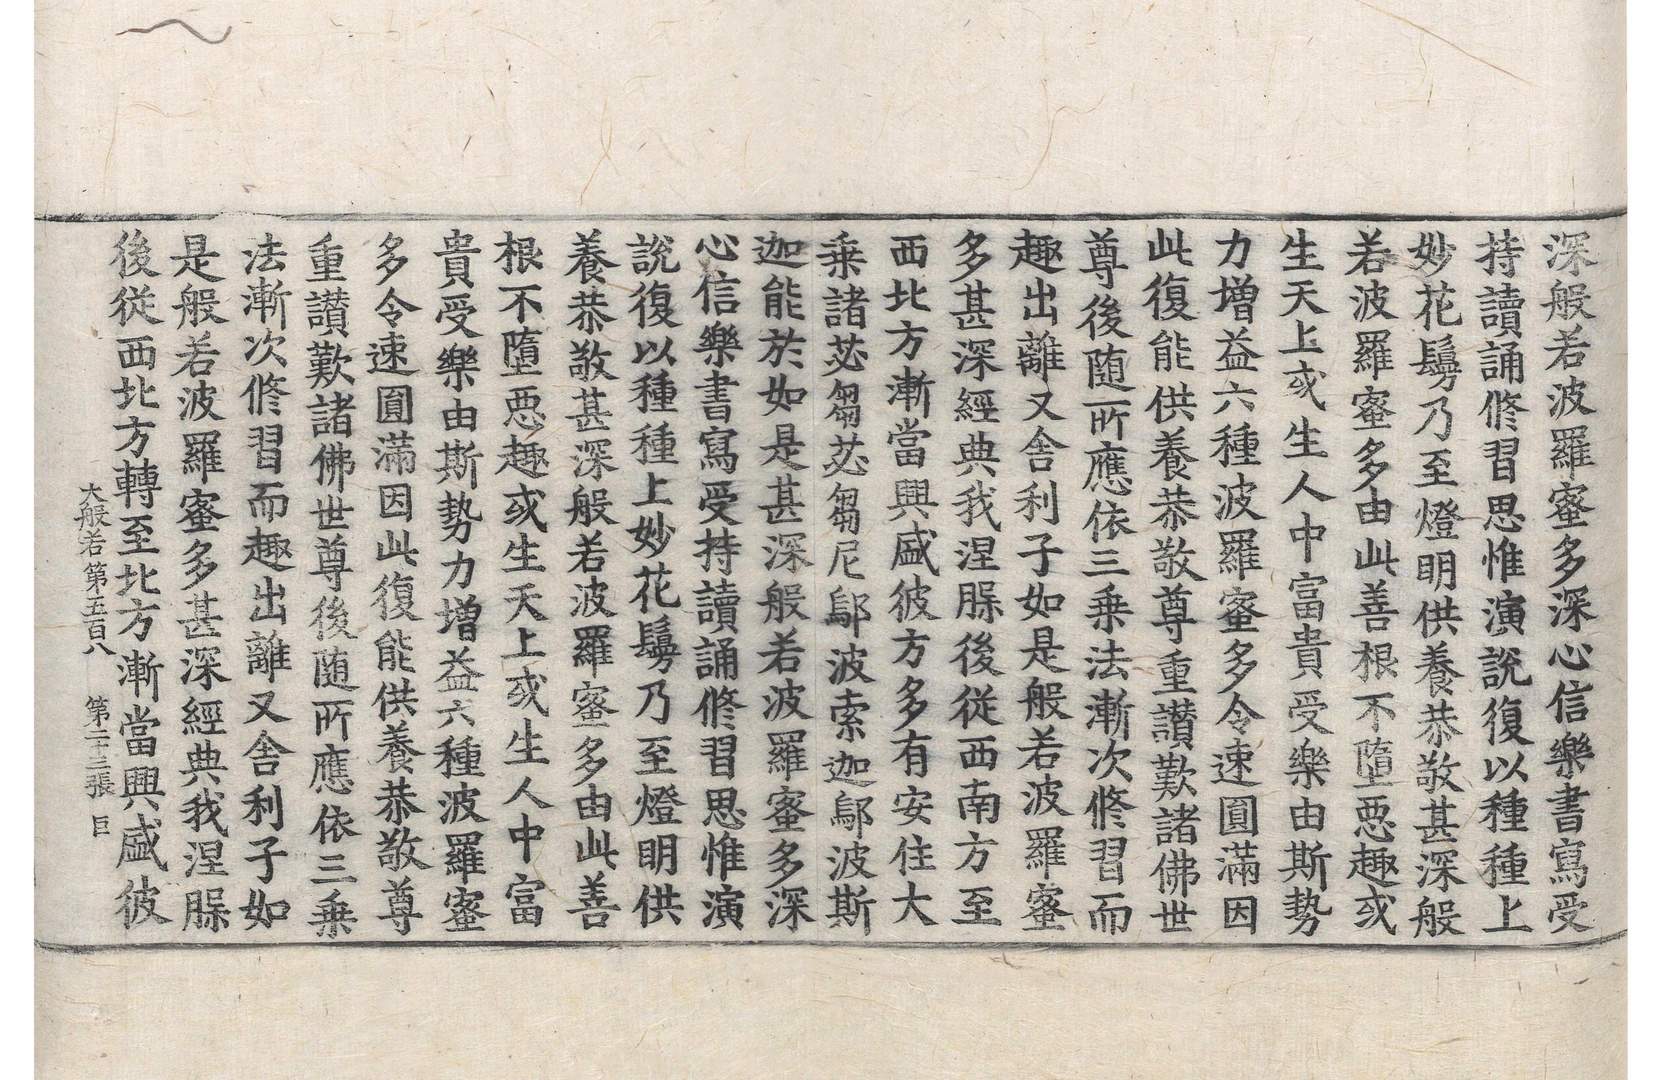 深般若波羅蜜多深心信樂書寫受
持讀誦修習思惟演說復以種種上
妙花鬘乃至燈明供養恭敬甚深般
若波羅蜜多由此善根不墮惡趣或
生天上或生人中富貴受樂由斯勢
力增益六種波羅蜜多令速圓滿因
此復能供養恭敬尊重讃歎諸佛世
尊後随所應依三乗法漸次修習而
趣出離又舎利子如是般若波羅蜜
多甚深經典我涅槃後從西南方至
西北方漸當興盛彼方多有安住大
乗諸苾芻苾芻尼鄔波索迦鄔波斯
迦能於如是甚深般若波羅蜜多深
心信樂書寫受持讀誦修習思惟演
說復以種種上妙花鬘乃至燈明供
養恭敬甚深般若波羅蜜多由此善
根不墮惡趣或生天上或生人中富
貴受樂由斯勢力增益六種波羅蜜
多令速圓滿因此復能供養恭敬尊
重讃歎諸佛世尊後随所應依三乗
法漸次修習而趣出離又舎利子如
是般若波羅蜜多甚深經典我涅槃
後從西北方轉至北方漸當興盛彼
大般若第五百八 第二十三張 巨